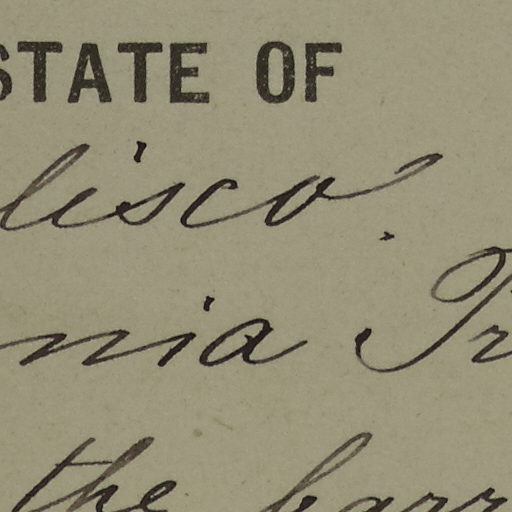 STATE OF
lisco.
nia Tr
the barr